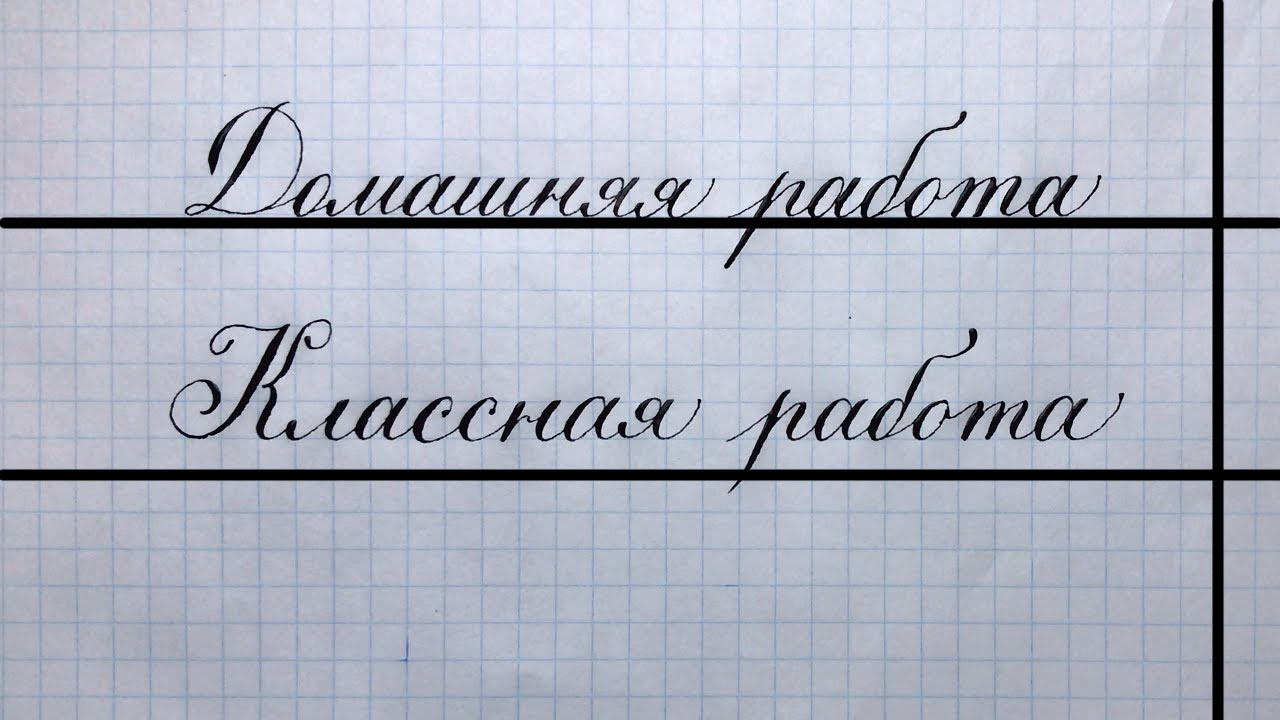 Домашняя работа
Классная работа